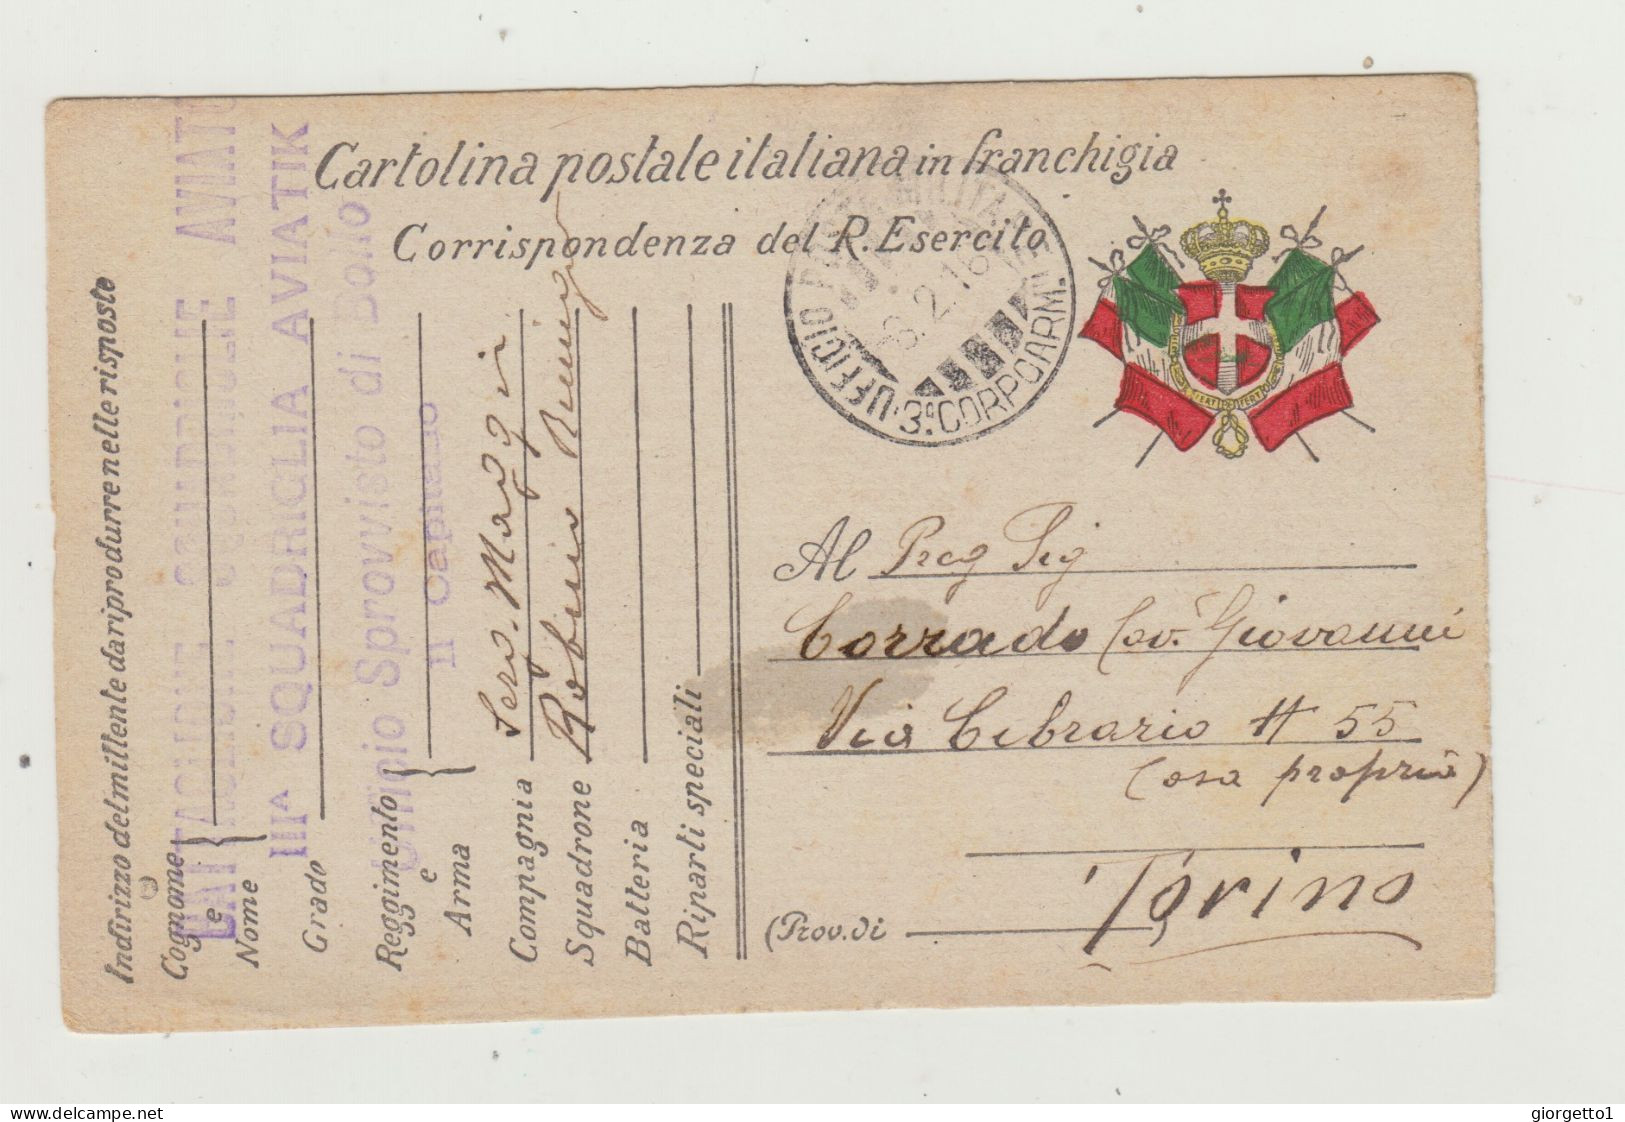 Cartolina postale italiana in franchigia
Corrispondenza del R. Esercito
UFFICIO POSTA MILITARE
8.2.16
3ª CORPO ARM.
Indirizzo del mittente da riprodurre nelle risposte
Cognome
e
Nome
Grado
Reggimento
e
Arma
Compagnia
Squadrone
Batteria
Riparti speciali
BATTAGLIONE SQUADRIGLIE AVIATO
IIIª SQUADRIGLIA AVIATIK
Ufficio Sprovvisto di Bollo
Il Capitano
FERT FERT
Al Preg Sig
Corrado Cav. Giovanni
Via Cibrario # 55
(casa propria)
Torino
(Prov. di
delcampe.net
giorgetto1